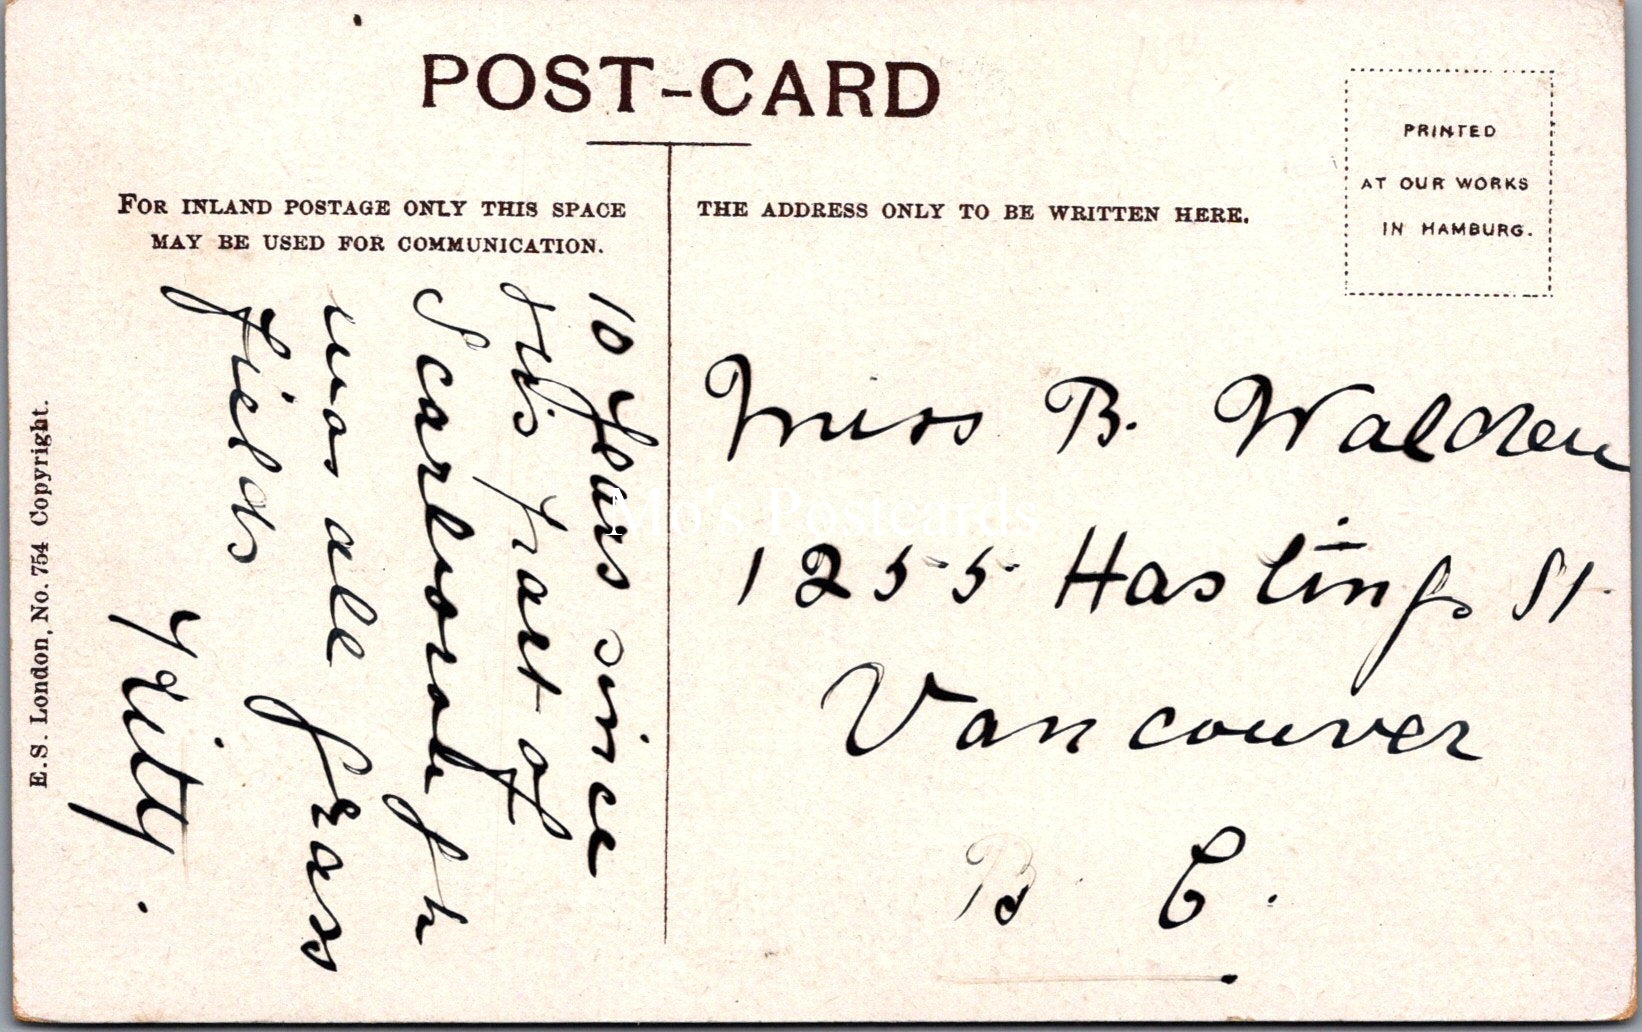 POST-CARD
FOR INLAND POSTAGE ONLY THIS SPACE
MAY BE USED FOR COMMUNICATION.
THE ADDRESS ONLY TO BE WRITTEN HERE.
PRINTED
AT OUR WORKS
IN HAMBURG.
10 years since
this part of
Scarborough
was all grass
fields
Kitty.
Miss B. Walden
1255 Hastings St.
Vancouver
B C.
E.S. London, No. 754 Copyright.
Mo's Postcards